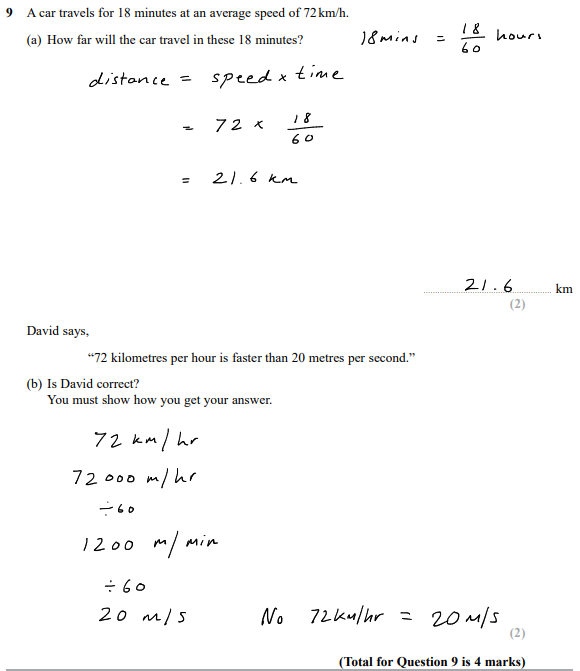 9 A car travels for 18 minutes at an average speed of 72 km/h.
(a) How far will the car travel in these 18 minutes?
18mins = 18/60 hours
distance = speed × time
= 72 × 18/60
= 21.6 km
21.6 km
(2)
David says,
“72 kilometres per hour is faster than 20 metres per second.”
(b) Is David correct?
You must show how you get your answer.
72 km/hr
72000 m/hr
÷60
1200 m/min
÷60
20 m/s No 72km/hr = 20 m/s
(2)
(Total for Question 9 is 4 marks)